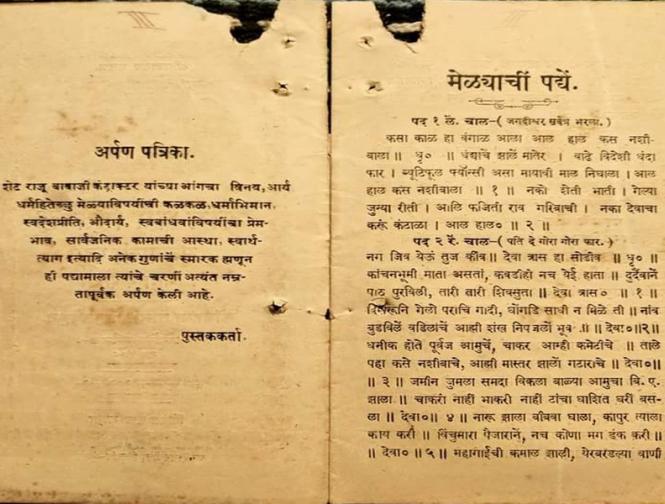 अर्पण पत्रिका.
शेट राजू बाबाजी कंट्राक्टर यांच्या आंगचा विनय, आर्य
धर्महितेच्छु मेळ्याविषयींची कळकळ, धर्माभिमान,
स्वदेशप्रीति, औदार्य, स्वबांधवांविषयींचा प्रेम-
भाव, सार्वजनिक कामाची आस्था, स्वार्थ-
त्याग इत्यादि अनेक गुणांचें स्मारक ह्मणून
ही पद्यमाला त्यांचे चरणीं अत्यंत नम्र-
तापूर्वक अर्पण केली आहे.
पुस्तककर्ता.
मेळ्याचीं पद्यें.
पद १ लें. चाल—( जगदीश्वर सर्वत्र भरला. )
कसा काळ हा वंगाळ आला आल हाल कस नशी-
बाला ॥ धृ० ॥ धंद्याचें झालें मातेर । वाढे विदेशी धंदा
फार । ब्यूटिफूल फ्यॉन्सी असा मायावी माल निघाला । आल
हाल कस नशीबाला ॥ १ ॥ नको शेती भाती । गेल्या
जुग्या रीती । आलि फजिती राव गरिबाची । नका देवाचा
करूं कंटाळा । आल हाल० ॥ २ ॥
पद २ रें. चाल—( पति दे गोरा गोरा फार. )
नग जिव येऊं तुज कींव॥ देवा त्रास हा सोडीव ॥ धृ० ॥
कांचनभूमी माता असतां, कवडीही नच येई हाता ॥ दुर्दैवानें
पाठ पुरविली, तारी तारी शिवसुता ॥ देवा त्रास० ॥ १ ॥
गेली पराचि गादी, घोंगडि साधी न मिळे ती ॥ नांव
बुडविलें वडिलांचें आह्मी शंख निपजलों भूव ॥ ॥ देवा०॥२॥
धनीक होते पूर्वज आमुचे, चाकर आम्ही कमेटीचे ॥ ताले
पहा कसे नशीबाचे, आह्मी मास्तर झालों गटाराचे ॥ देवा०॥
॥ ३ ॥ जमीन जुमला समदा विकला बाळ्या आमुचा बि. ए.
झाला ॥ चाकरी नाहीं भाकरी नाहीं टांचा घाशित घरीं बस-
ला ॥ देवा०॥ ४ ॥ नारू झाला बोंबबा घाला, कापुर त्याला
काय करी ॥ विंचुमारा पैजारानें, नच कोणा मग डंक करी ॥
॥ देवा० ॥५ ॥ महागाईची कमाल झाली, येरबरंडल्या वाणी